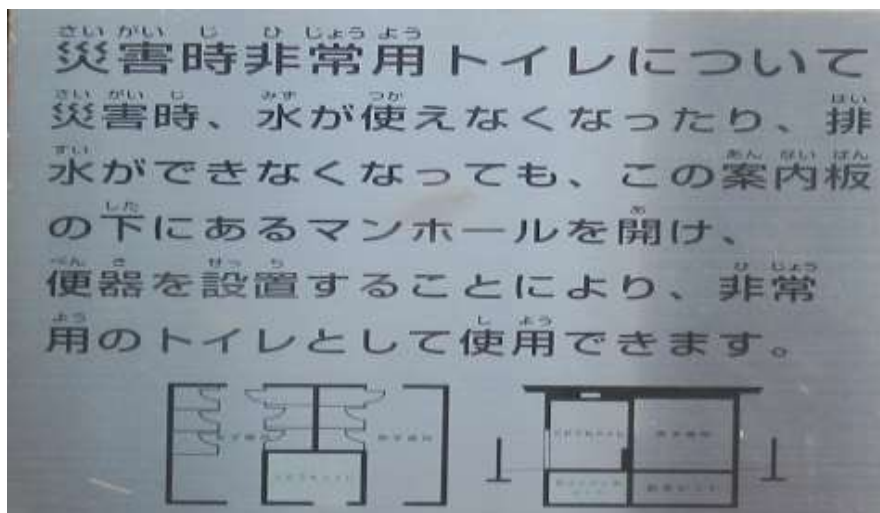 災害時非常用トイレについて
災害時、水が使えなくなったり、排
水ができなくなっても、この案内板
の下にあるマンホールを開け、
便器を設置することにより、非常
用のトイレとして使用できます。